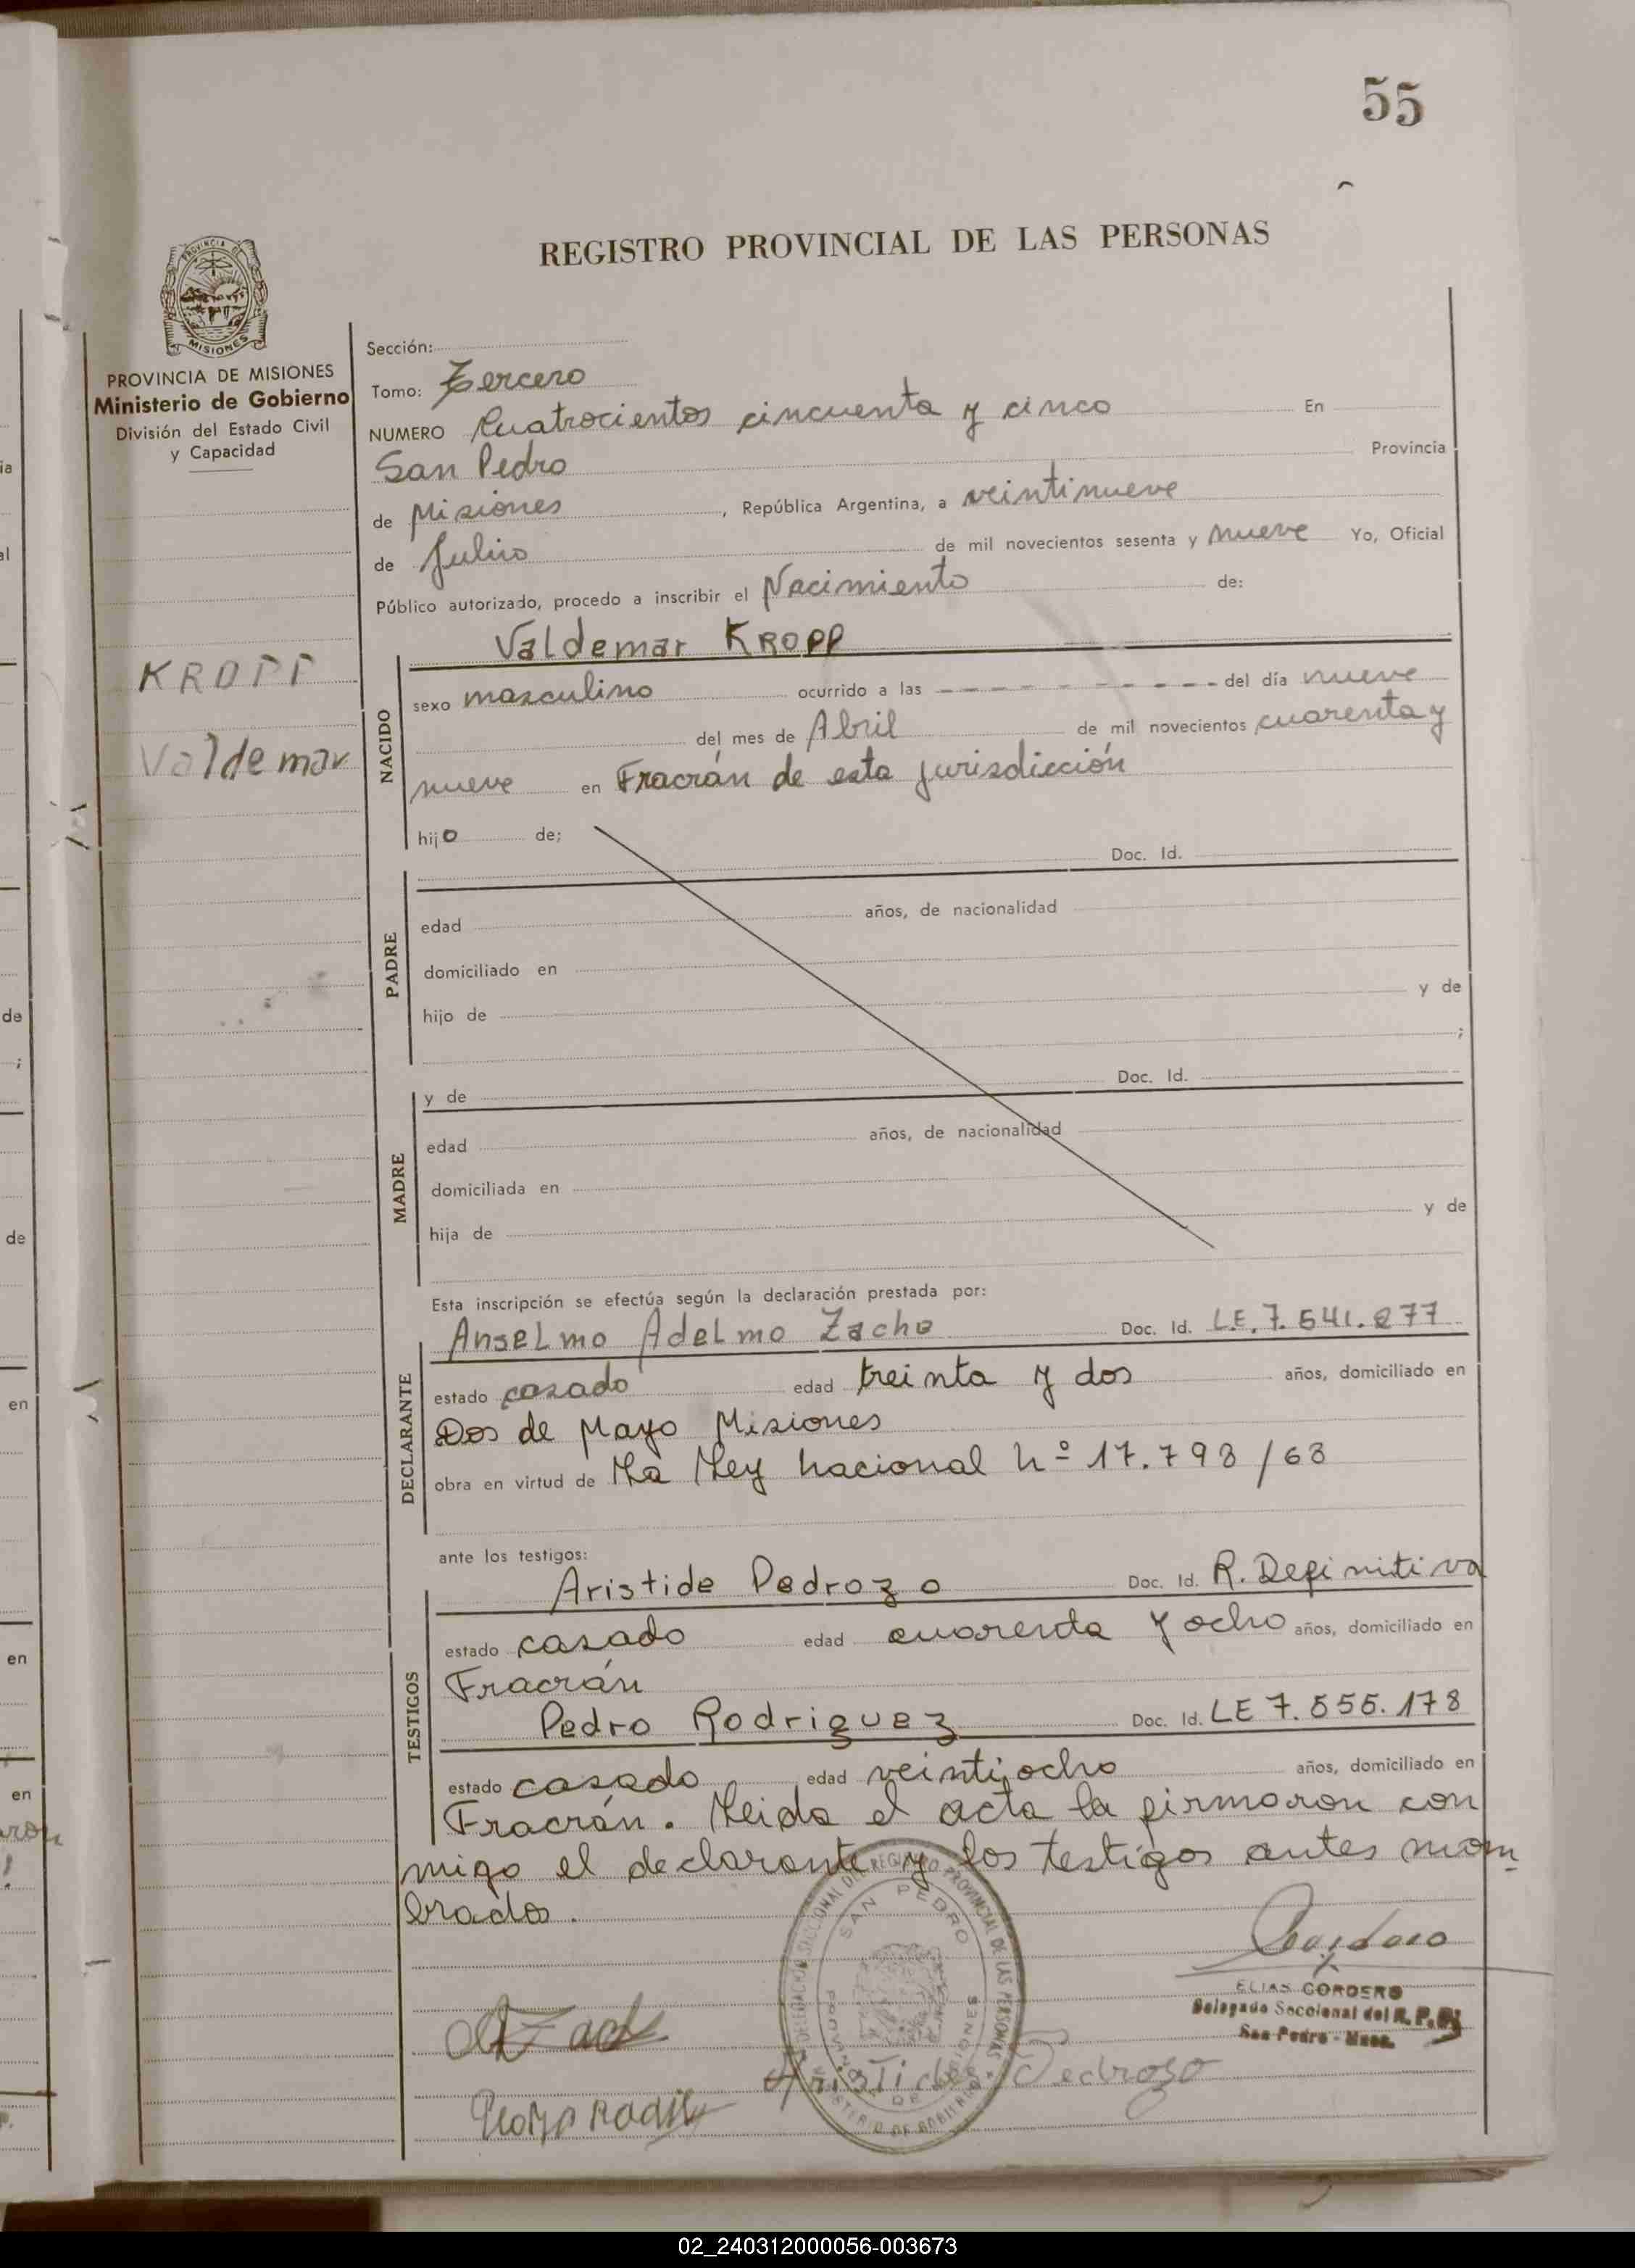 55
REGISTRO PROVINCIAL DE LAS PERSONAS
PROVINCIA DE MISIONES
Ministerio de Gobierno
División del Estado Civil
y Capacidad
KROPP
Valdemar
Sección:
Tomo: Tercero
NUMERO Cuatrocientos cincuenta y cinco En
San Pedro Provincia
de Misiones , República Argentina, a veintinueve
de Julio de mil novecientos sesenta y nueve Yo, Oficial
Público autorizado, procedo a inscribir el Nacimiento de:
Valdemar KROPP
NACIDO
sexo masculino ocurrido a las - - - - - - - - - - del día nueve
del mes de Abril de mil novecientos cuarenta y
nueve en Fracrán de esta jurisdicción
hijo de;
Doc. Id.
PADRE
edad años, de nacionalidad
domiciliado en
hijo de y de
;
y de Doc. Id.
MADRE
edad años, de nacionalidad
domiciliada en
hija de y de
Esta inscripción se efectúa según la declaración prestada por:
Anselmo Adelmo Zacho Doc. Id. L.E. 7.541.277
DECLARANTE
estado casado edad treinta y dos años, domiciliado en
Dos de Mayo Misiones
obra en virtud de La Ley Nacional Nº 17.793/68
ante los testigos:
Aristide Pedrozo Doc. Id. R. Definitiva
TESTIGOS
estado casado edad cuarenta y ocho años, domiciliado en
Fracrán
Pedro Rodriguez Doc. Id. LE 7.555.178
estado casado edad veintiocho años, domiciliado en
Fracrán. Leida el acta la firmaron con
migo el declarante y los testigos antes nom
brados.
DELEGACION SECCIONAL DEL REGISTRO PROVINCIAL DE LAS PERSONAS
SAN PEDRO
PROVINCIA DE MISIONES
MINISTERIO DE GOBIERNO
ELIAS CORDERO
Delegado Seccional del R. P. P.
San Pedro - Mnes.
Aristides Pedrozo
02_240312000056-003673